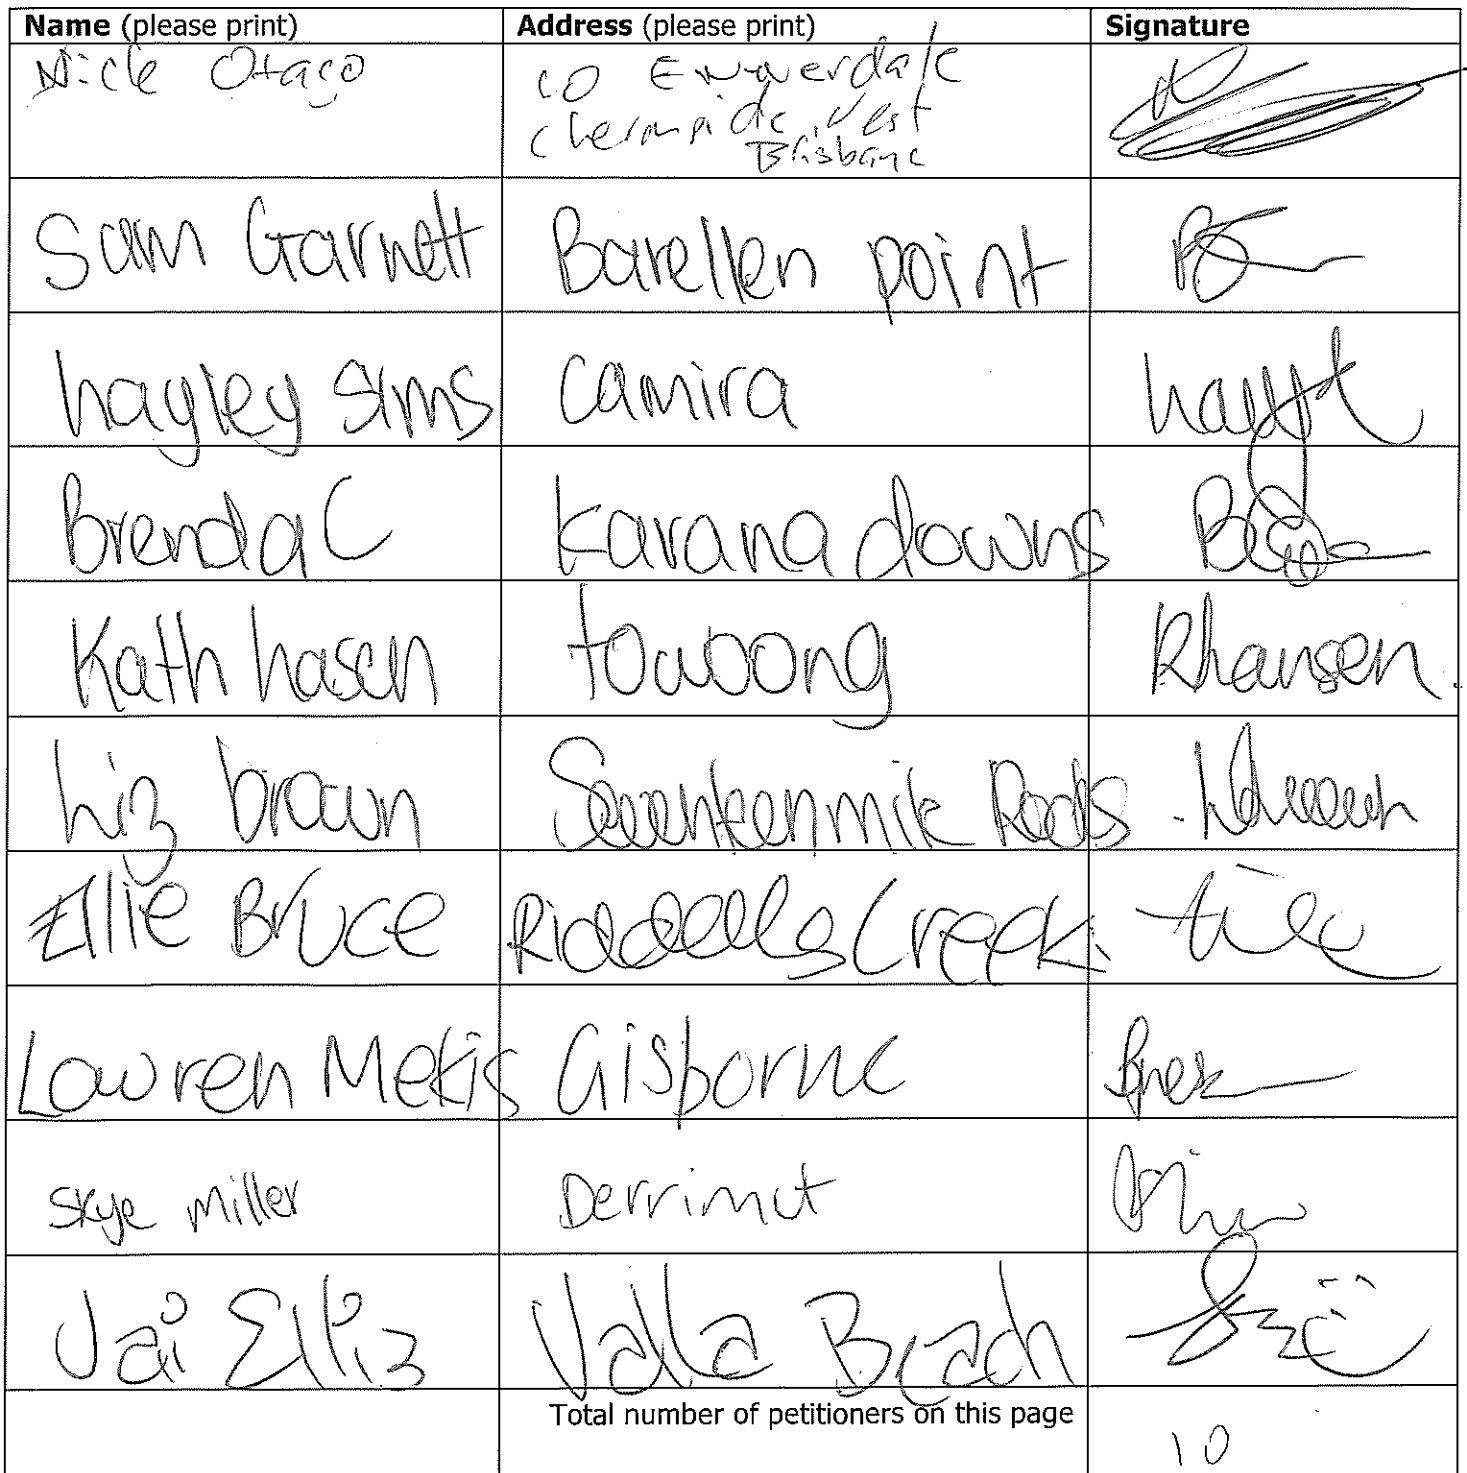 Name (please print) Address (please print) Signature
Nick Otago
10 Ennerdale
Chermside West
Brisbane
Sam Garnett Barellen point
hayley Sims camira
Brenda C karana downs
Kath hasen towoong Khansen
Liz brown Seventeenmile Rocks
Ellie Bruce Riddells Creek
Lauren Mekis Gisborne
Skye miller Derrimut
Jai Ellis Valla Beach
Total number of petitioners on this page
10